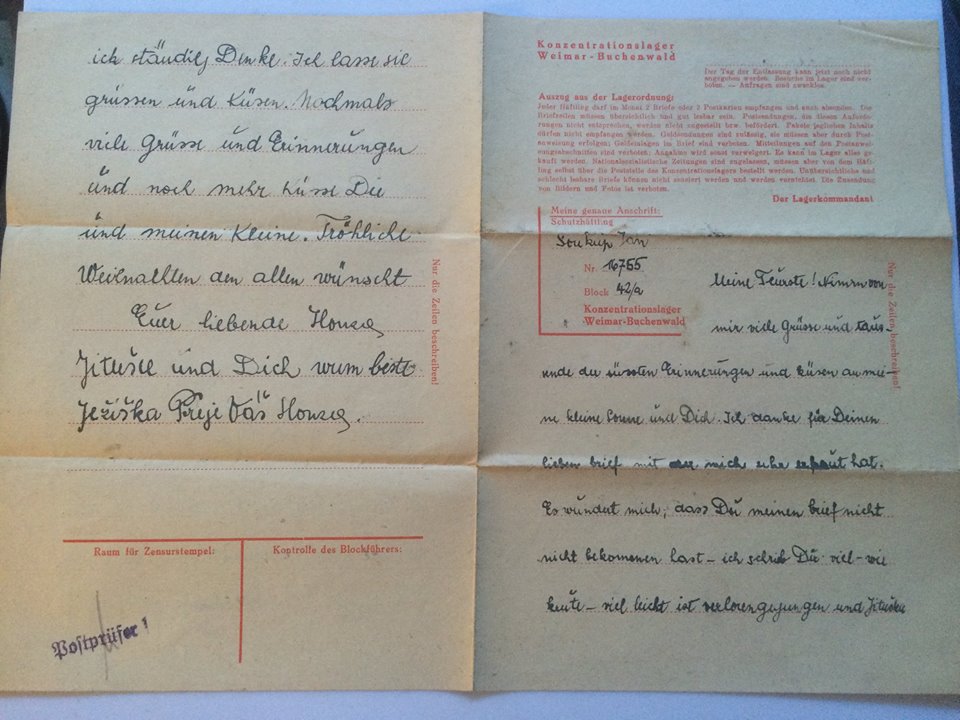 ich ständig Denke. Ich lasse sie
grüssen und Küsen. Nochmals
viele Grüsse und Erinnerungen
und noch mehr Küsse Die
und meinen Kleine. Fröhliche
Weihnachten den allen wünscht
Euer liebende Honza
Jitušce und Dich
Ježiška Preje Váš Honza.
Nur die Zeilen beschreiben!
Raum für Zensurstempel:
Kontrolle des Blockführers:
Postprüfer
Konzentrationslager
Weimar-Buchenwald
Der Tag der Entlassung kann jetzt noch nicht
angegeben werden. Besuche im Lager sind ver-
boten. — Anfragen sind zwecklos.
Auszug aus der Lagerordnung:
Jeder Häftling darf im Monat 2 Briefe oder 2 Postkarten empfangen und auch absenden. Die
Briefzeilen müssen übersichtlich und gut lesbar sein. Postsendungen, die diesen Anforde-
rungen nicht entsprechen, werden nicht zugestellt bzw. befördert. Pakete jeglichen Inhalts
dürfen nicht empfangen werden. Geldsendungen sind zulässig, sie müssen aber durch Post-
anweisung erfolgen; Geldeinlagen im Brief sind verboten. Mitteilungen auf den Postanwei-
sungsabschnitten sind verboten; Annahme wird sonst verweigert. Es kann im Lager alles ge-
kauft werden. Nationalsozialistische Zeitungen sind zugelassen, müssen aber von dem Häft-
ling selbst über die Poststelle des Konzentrationslagers bestellt werden. Unübersichtliche und
schlecht lesbare Briefe können nicht zensiert werden und werden vernichtet. Die Zusendung
von Bildern und Fotos ist verboten.
Der Lagerkommandant
Meine genaue Anschrift:
Schutzhäftling
Soukup Jan
Nr. 116755
Block 42/a
Konzentrationslager
Weimar-Buchenwald
Nur die Zeilen beschreiben!
Meine Teurste! Nimm von
mir viele Grüsse und taus-
ende der süssten Erinnerungen und küsen an mei-
ne kleine Sonne und Dich. Ich danke für Deinen
lieben brief mit mich hat.
Es wundert mich, dass Du meinen brief nicht
nicht bekomenen hast – ich schrieb Dir viel – wie
heute – viel leicht ist verlorengegungen und Jituška